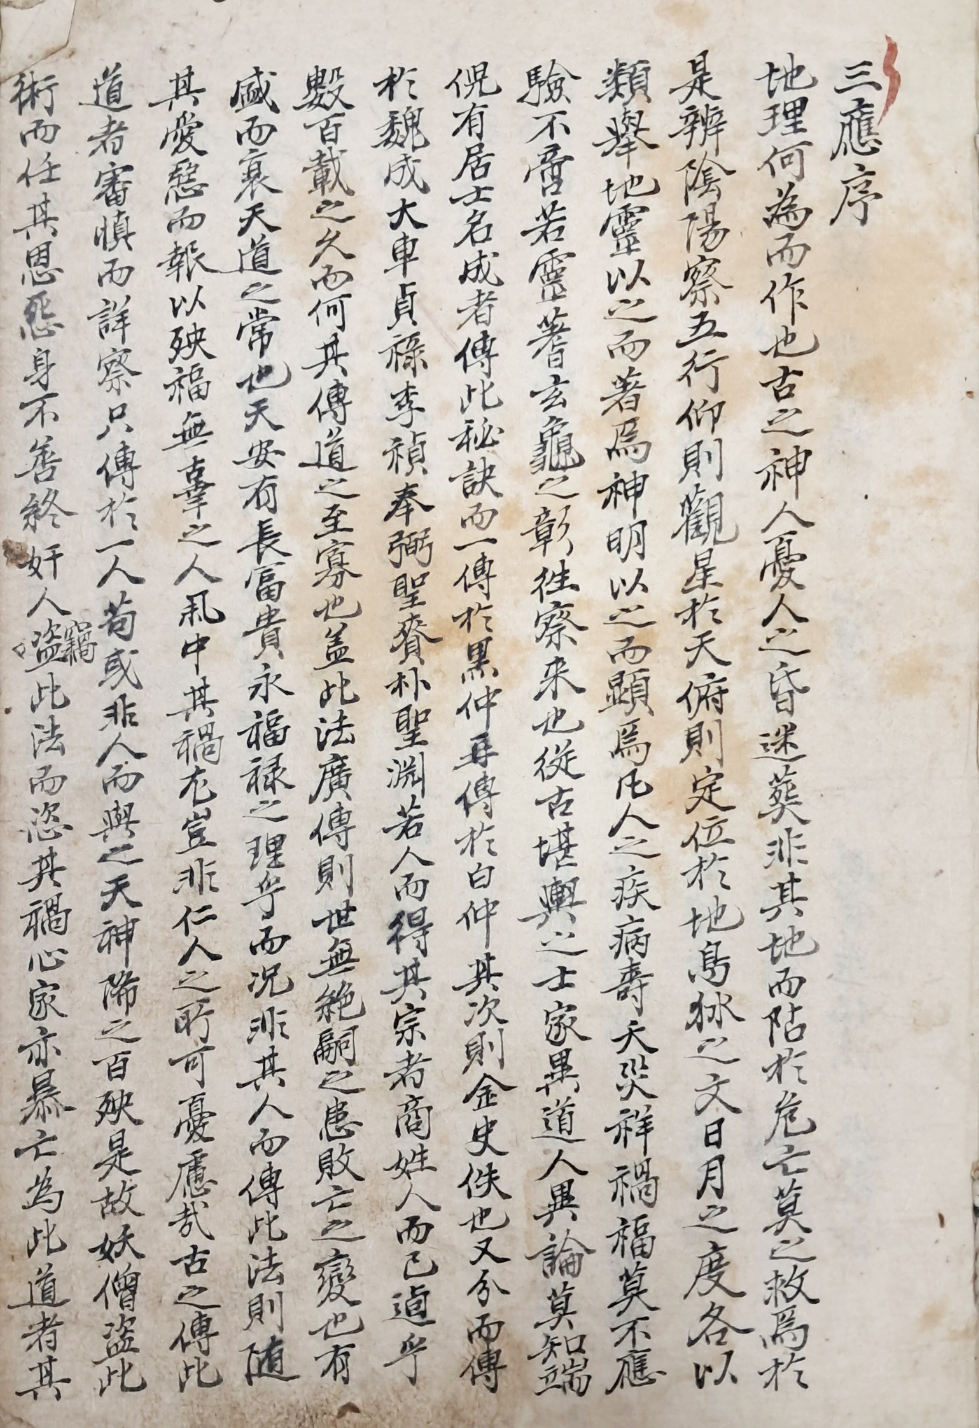 三應序
地理何為而作也古之神人憂人之昏迷葬非其地而阽於危亡莫之救焉於
是辨陰陽察五行仰則觀星於天俯則定位於地鳥獸之文日月之度各以
類舉地靈以之而著焉神明以之而顯焉凡人之疾病壽夭災祥禍福莫不應
驗不啻若靈蓍玄龜之彰往察来也從古堪輿之士家異道人異論莫知端
倪有居士名成者傳此秘訣而一傳於黒仲再傳於白仲其次則金史佚也又分而傳
於魏成大車貞祿李禎奉弼聖賚朴聖淵若人而得其宗者商姓人而已逌乎
數百載之久而何其傳道之至寡也盖此法廣傳則世無絶嗣之患敗亡之變也有
盛而衰天道之常也天安有長冨貴永福禄之理乎而况非其人而傳此法則随
其愛惡而報以殃福無辜之人風中其禍尤豈非仁人之所可憂慮哉古之傳此
道者審慎而詳察只傳於一人苟或非人而與之天神降之百殃是故妖僧盗此
術而任其恩怨身不善終奸人盗竊此法而恣其禍心家亦暴亡為此道者其